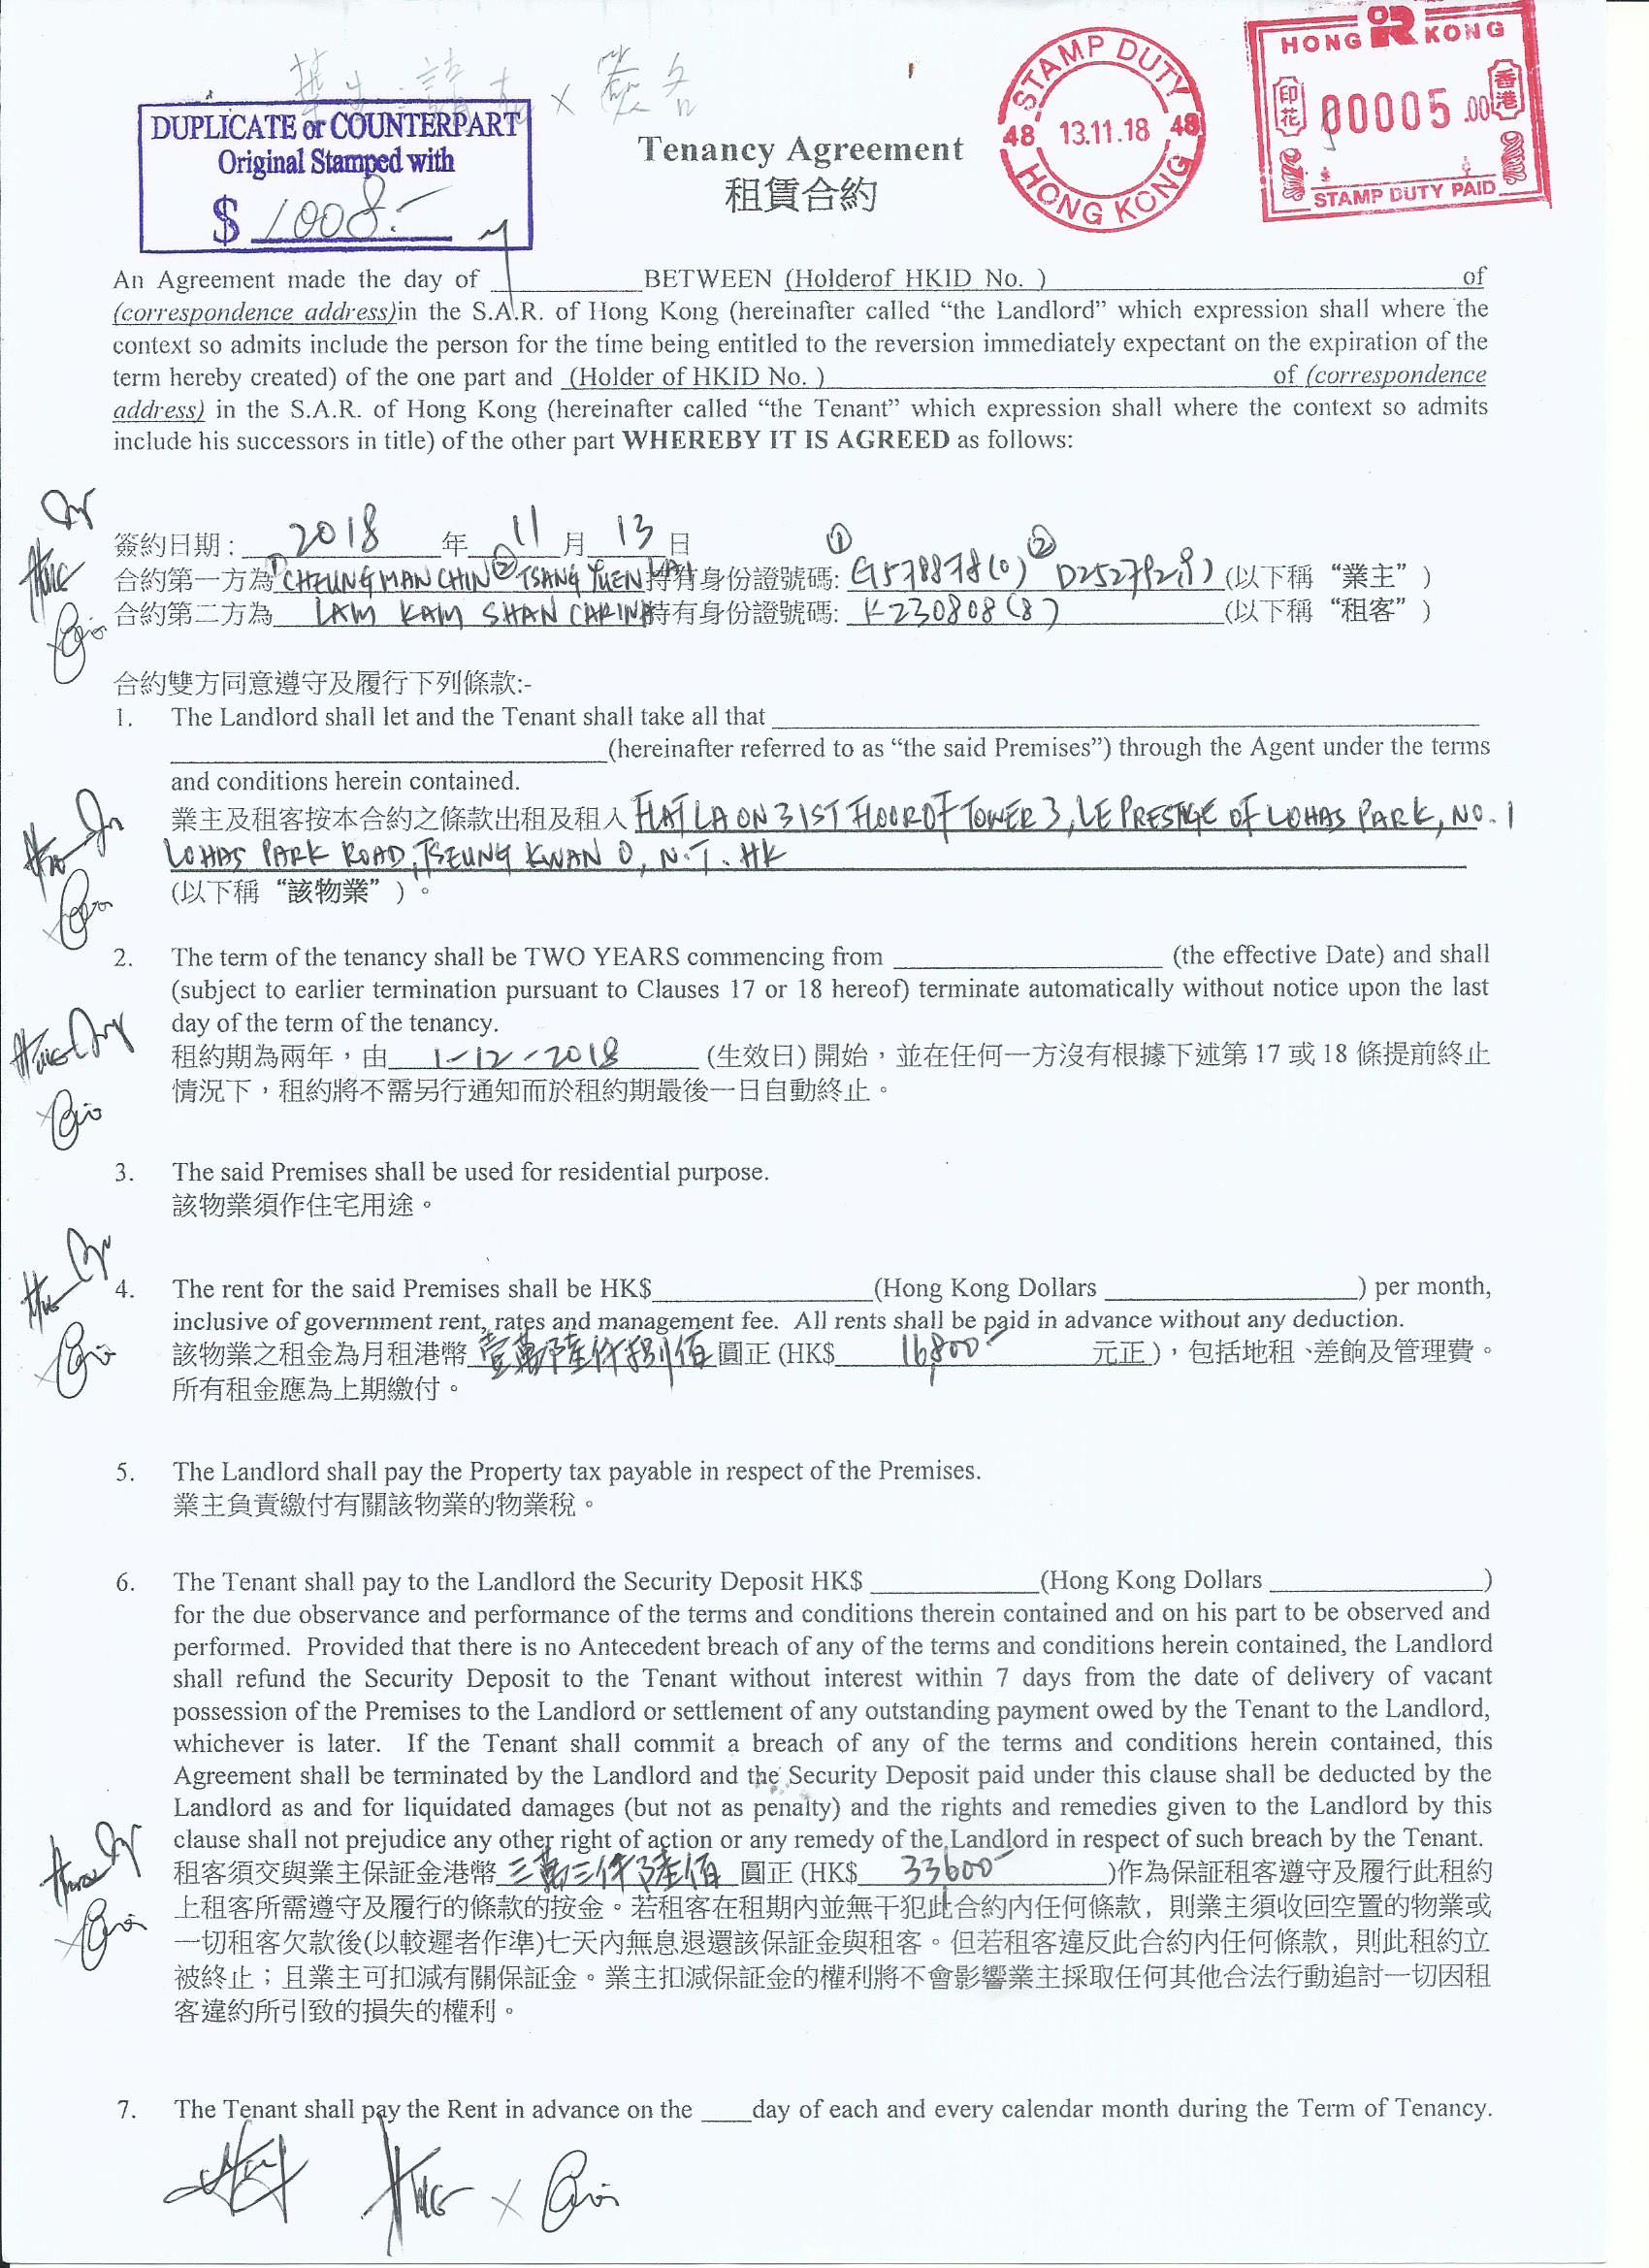 華生:請在 x 簽名
DUPLICATE or COUNTERPART
Original Stamped with
$ 1008.-
STAMP DUTY
48 13.11.18 48
HONG KONG
HONG KONG
印花 00005.00 香港
STAMP DUTY PAID
Tenancy Agreement
租賃合約
An Agreement made the day of ________BETWEEN (Holderof HKID No. ) of
(correspondence address)in the S.A.R. of Hong Kong (hereinafter called “the Landlord” which expression shall where the
context so admits include the person for the time being entitled to the reversion immediately expectant on the expiration of the
term hereby created) of the one part and (Holder of HKID No. ) of (correspondence
address) in the S.A.R. of Hong Kong (hereinafter called “the Tenant” which expression shall where the context so admits
include his successors in title) of the other part WHEREBY IT IS AGREED as follows:
簽約日期 : 2018 年 11 月 13 日
合約第一方為 ① CHEUNG MAN CHIN ② TSANG YUEN 持有身份證號碼: ① G578878(0) ② (以下稱 “業主” )
合約第二方為 LAM KAM SHAN CARINA 持有身份證號碼: K230808(8) (以下稱 “租客” )
合約雙方同意遵守及履行下列條款:-
1. The Landlord shall let and the Tenant shall take all that ________
________(hereinafter referred to as “the said Premises”) through the Agent under the terms
and conditions herein contained.
業主及租客按本合約之條款出租及租入 FLAT LA ON 31ST FLOOR OF TOWER 3, LE PRESTIGE OF LOHAS PARK, NO. 1
LOHAS PARK ROAD, TSEUNG KWAN O, N.T. HK
(以下稱 “該物業” ) 。
2. The term of the tenancy shall be TWO YEARS commencing from ________ (the effective Date) and shall
(subject to earlier termination pursuant to Clauses 17 or 18 hereof) terminate automatically without notice upon the last
day of the term of the tenancy.
租約期為兩年，由 1-12-2018 (生效日) 開始，並在任何一方沒有根據下述第 17 或 18 條提前終止
情況下，租約將不需另行通知而於租約期最後一日自動終止。
3. The said Premises shall be used for residential purpose.
該物業須作住宅用途。
4. The rent for the said Premises shall be HK$________(Hong Kong Dollars ________) per month,
inclusive of government rent, rates and management fee. All rents shall be paid in advance without any deduction.
該物業之租金為月租港幣 壹萬陸仟捌佰 圓正 (HK$ 16,800- 元正 )，包括地租、差餉及管理費。
所有租金應為上期繳付。
5. The Landlord shall pay the Property tax payable in respect of the Premises.
業主負責繳付有關該物業的物業稅。
6. The Tenant shall pay to the Landlord the Security Deposit HK$ ________(Hong Kong Dollars ________)
for the due observance and performance of the terms and conditions therein contained and on his part to be observed and
performed. Provided that there is no Antecedent breach of any of the terms and conditions herein contained, the Landlord
shall refund the Security Deposit to the Tenant without interest within 7 days from the date of delivery of vacant
possession of the Premises to the Landlord or settlement of any outstanding payment owed by the Tenant to the Landlord,
whichever is later. If the Tenant shall commit a breach of any of the terms and conditions herein contained, this
Agreement shall be terminated by the Landlord and the Security Deposit paid under this clause shall be deducted by the
Landlord as and for liquidated damages (but not as penalty) and the rights and remedies given to the Landlord by this
clause shall not prejudice any other right of action or any remedy of the Landlord in respect of such breach by the Tenant.
租客須交與業主保証金港幣 三萬三仟陸佰 圓正 (HK$ 33600- )作為保証租客遵守及履行此租約
上租客所需遵守及履行的條款的按金。若租客在租期內並無干犯此合約內任何條款，則業主須收回空置的物業或
一切租客欠款後(以較遲者作準)七天內無息退還該保証金與租客。但若租客違反此合約內任何條款，則此租約立
被終止；且業主可扣減有關保証金。業主扣減保証金的權利將不會影響業主採取任何其他合法行動追討一切因租
客違約所引致的損失的權利。
7. The Tenant shall pay the Rent in advance on the ____day of each and every calendar month during the Term of Tenancy.